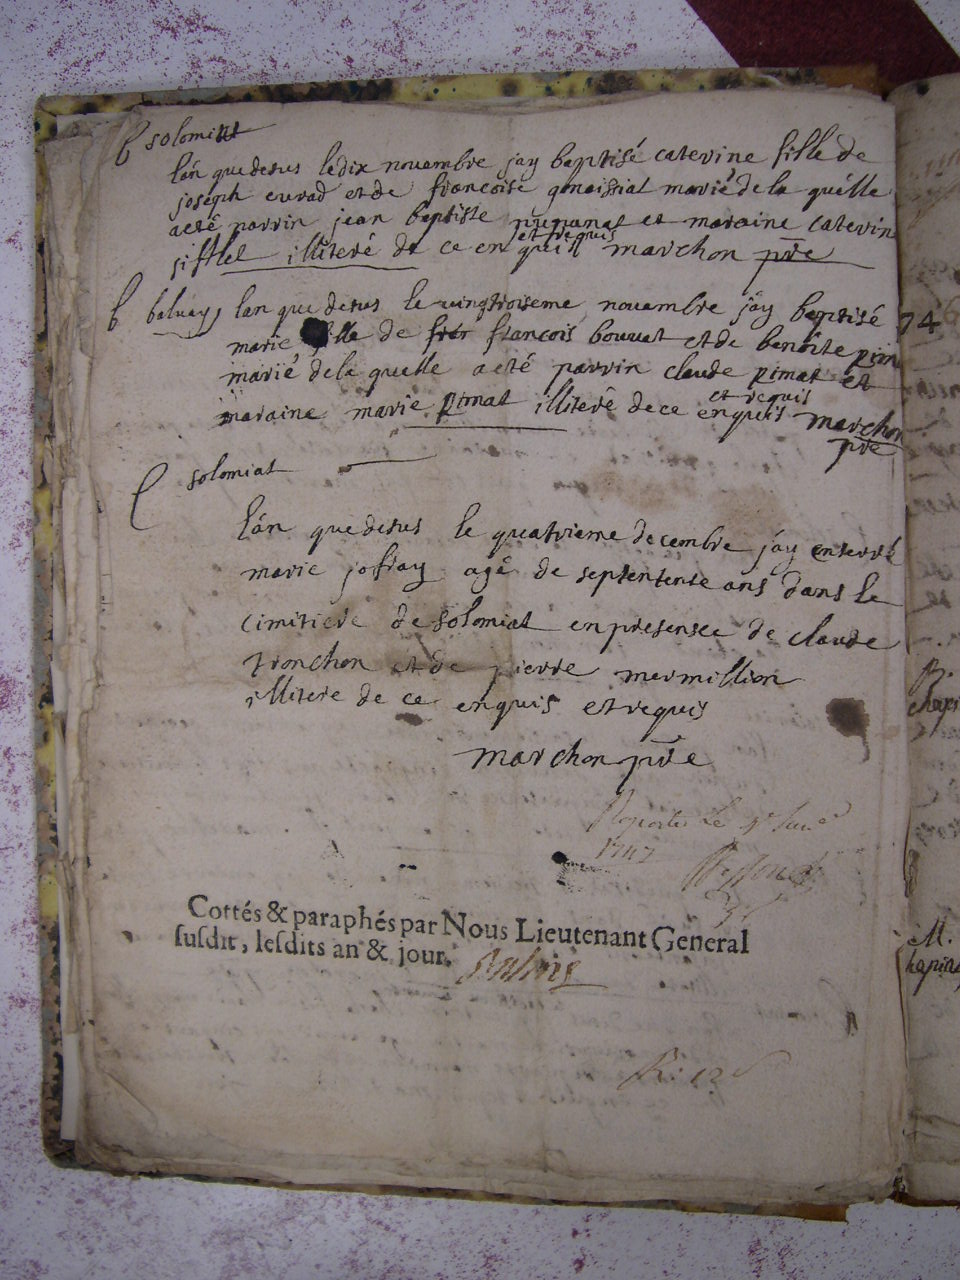 b solomiat
lan que desus le dix novembre jay baptisé caterine fille de
joseph evrad et de francoise gonaissiat marié de la quélle
a eté parrin jean baptiste et maraine caterin
sifflet illiteré de ce enquis et requis marchon pre
b balvay lan que desus le vingtroiseme novembre jay baptisé
marie fille de francois bouvat et de benoite pim
marié de la quelle a eté parrin claude pimat et
maraine marie pimat illiteré de ce enquis et requis marchon
pre
solomiat
lán que desus le quatrieme decembre jay enterré
marie jofray agé de septentente ans dans le
cimitiere de solomiat en presensce de claude
tronchon et de pierre mermillion
illitere de ce enquis et requis
marchon pre
1747
Cottés & paraphés par Nous Lieutenant General
susdit, lesdits an & jour.
74